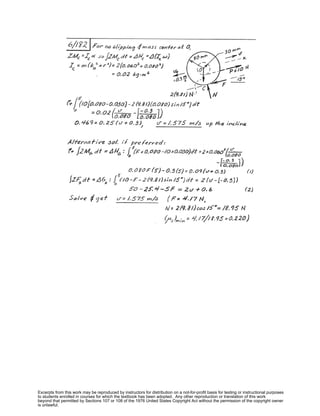 6/182 For no slipping & mass center at O,
ΣM_C = I_C α so ∫ΣM_C dt = ΔH_C = Δ(I_C ω)
I_C = m(k_O² + r²) = 2(0.060² + 0.080²)
= 0.02 kg·m²
30 mm
80 mm
P=10 N
15°
2(9.81) N
N
F
C
x
∫₀⁵ (10[0.080-0.030] - 2(9.81)(0.080) sin 15°) dt
= 0.02 [υ/0.080 - (-0.3)/0.080]
0.469 = 0.25(υ + 0.3), υ = 1.575 m/s up the incline
Alternative sol. if preferred:
∫ΣM_O dt = ΔH_O : ∫₀⁵ (F×0.080 - 10×0.030) dt = 2×0.060² [υ/0.080 - (-0.3)/0.080]
0.080F(5) - 0.3(5) = 0.09(υ + 0.3) (1)
∫ΣF_x dt = ΔG_x : ∫₀⁵ (10 - F - 2(9.81) sin 15°) dt = 2(υ - [-0.3])
50 - 25.4 - 5F = 2υ + 0.6 (2)
Solve & get υ = 1.575 m/s (F = 4.17 N,
N = 2(9.81) cos 15° = 18.95 N
(μ_s)min = 4.17/18.95 = 0.220)
Excerpts from this work may be reproduced by instructors for distribution on a not-for-profit basis for testing or instructional purposes
to students enrolled in courses for which the textbook has been adopted. Any other reproduction or translation of this work
beyond that permitted by Sections 107 or 108 of the 1976 United States Copyright Act without the permission of the copyright owner
is unlawful.